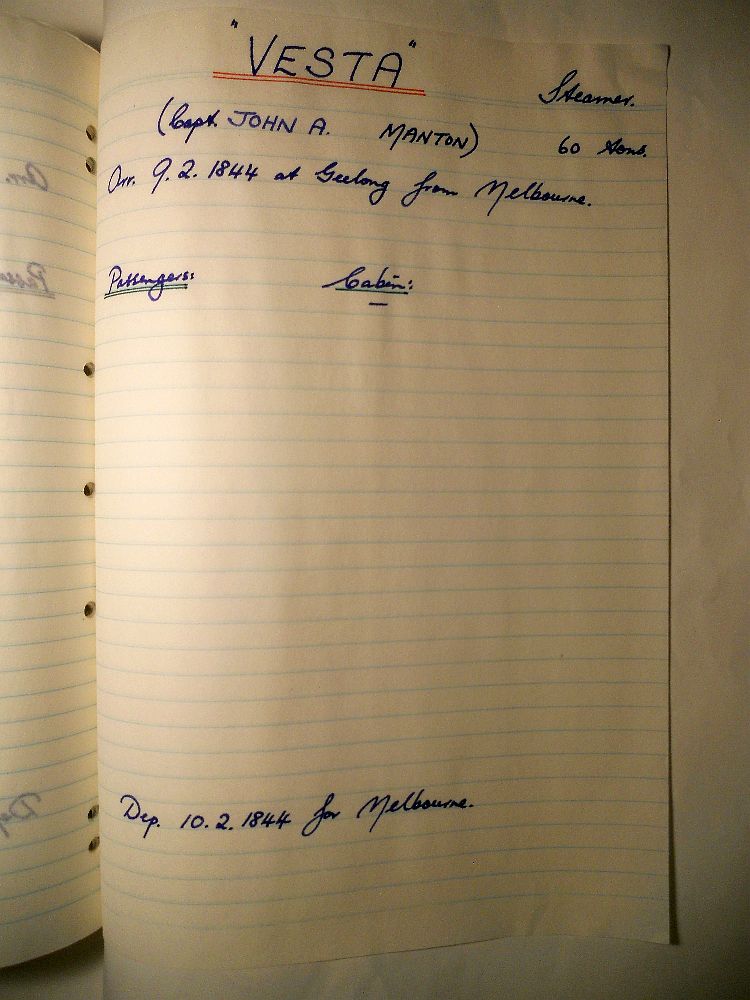 "VESTA"
Steamer.
(Capt. JOHN A. MANTON) 60 tons.
Arr. 9.2.1844 at Geelong from Melbourne.
Passengers: Cabin:
—
Dep. 10.2.1844 for Melbourne.